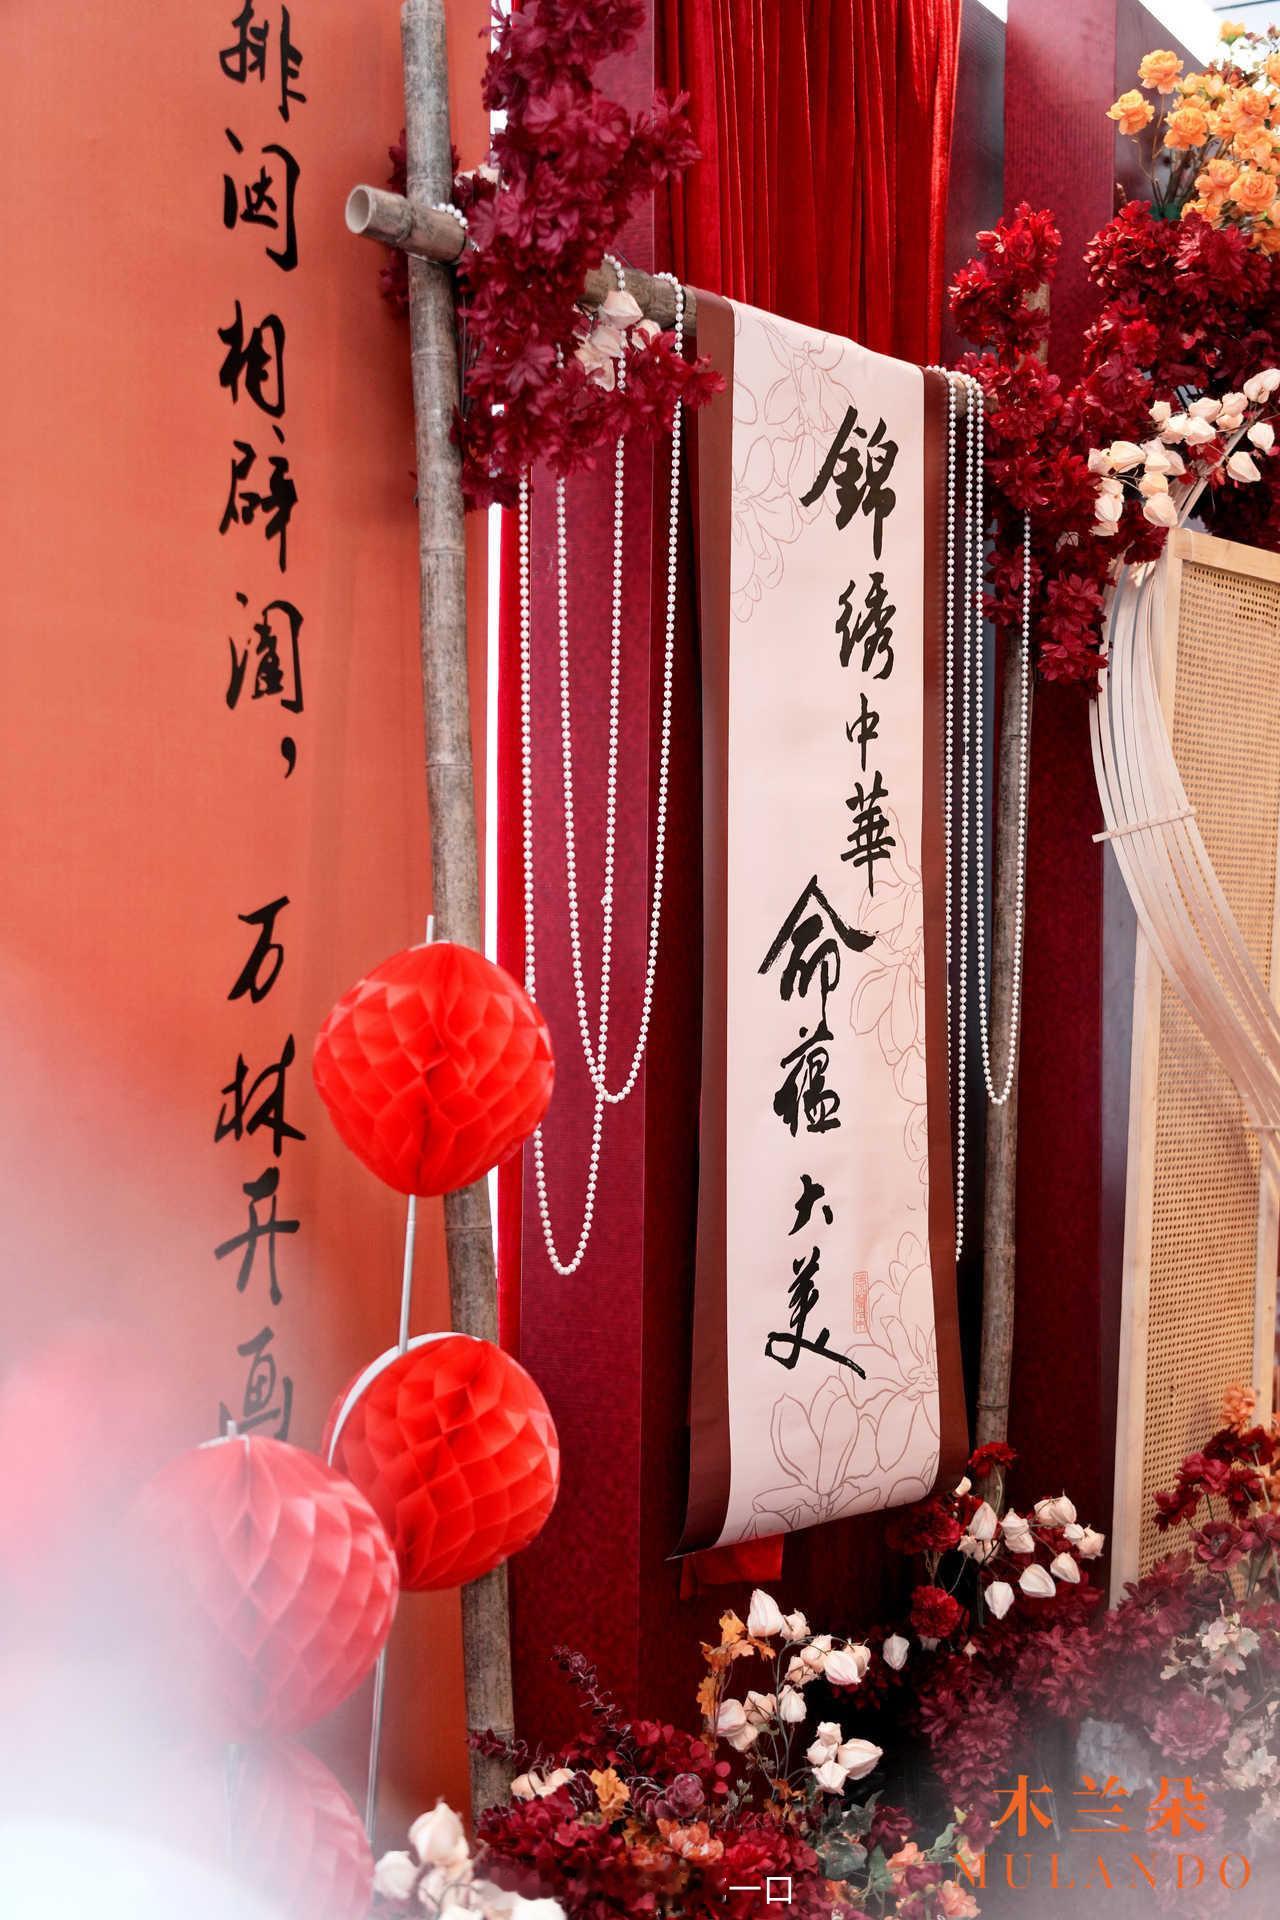 錦绣中華
命蕴大美
排闼相辟阖，万林开画
木兰朵
MULANDO
一口